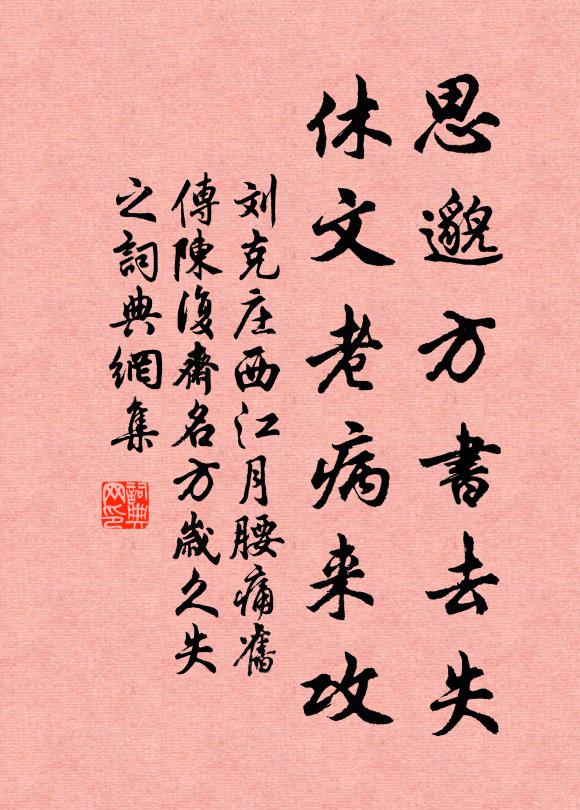 思邈方書去失
休文老病来攻
刘克庄西江月腰痛舊
傳陳復齋名方歲久失
之詞典網集
詞典
网印